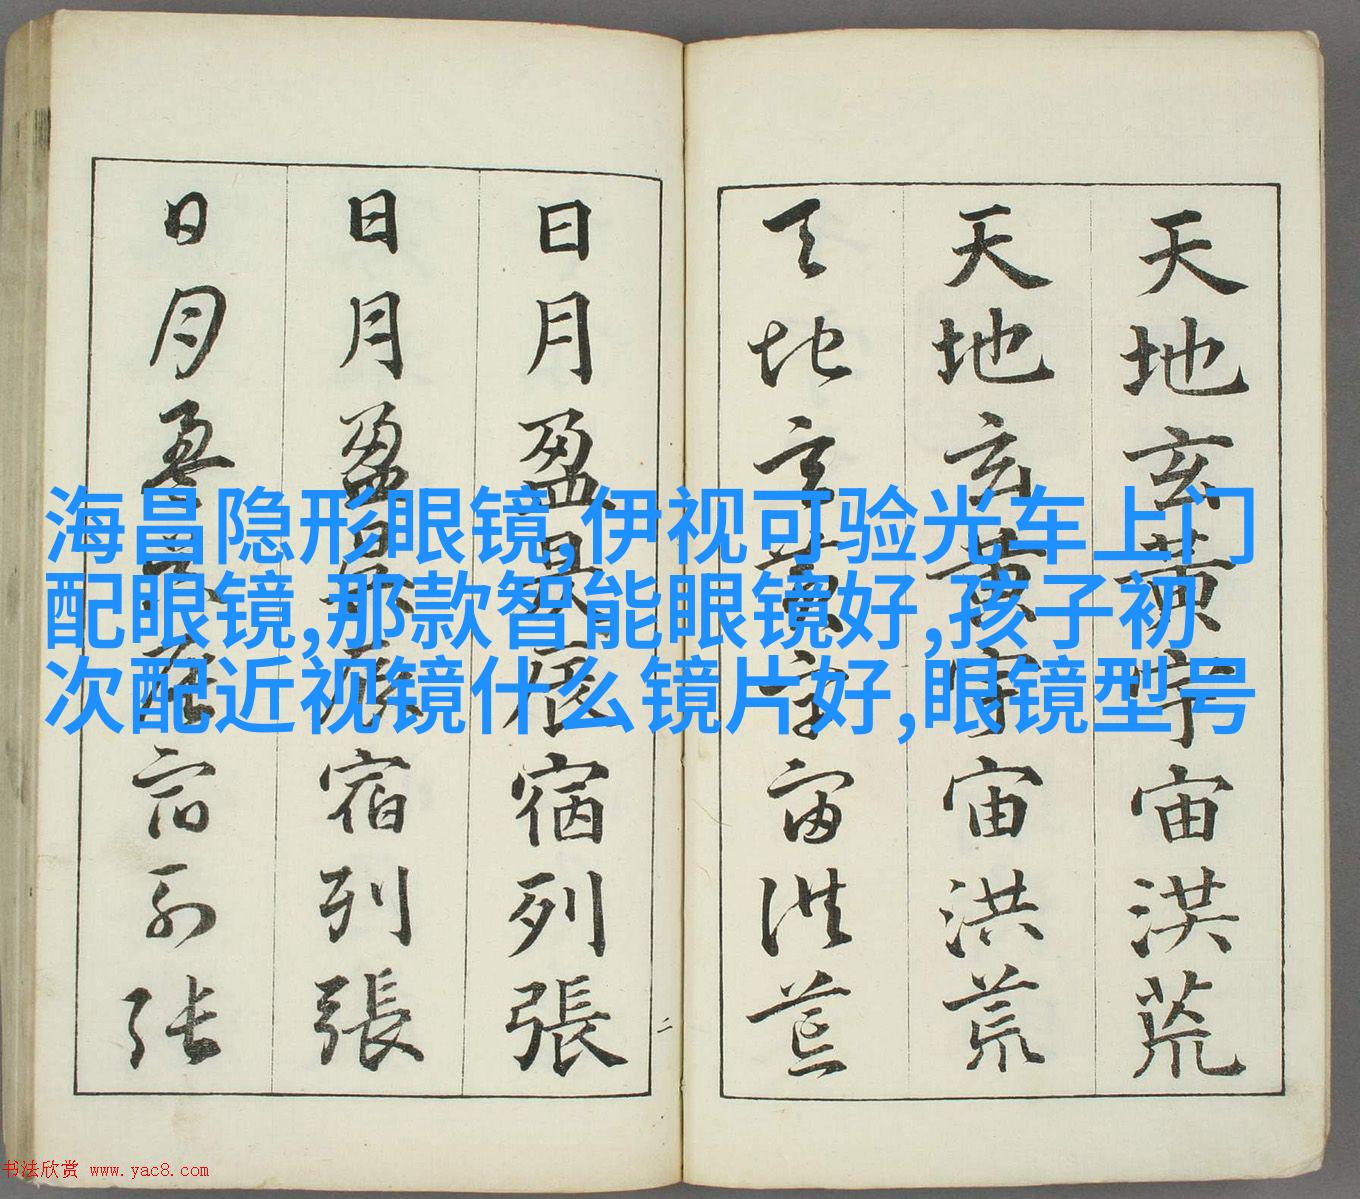 天地玄黃宇宙洪荒
天地玄黃宇宙洪荒
天地玄黃宇宙洪荒
日月盈昃辰宿列張
日月盈昃辰宿列張
日月盈昃辰宿列張
二
海昌隐形眼镜,伊视可验光车上门
配眼镜,那款智能眼镜好,孩子初
次配近视镜什么镜片好,眼镜型号
书法欣赏 www.yac8.com